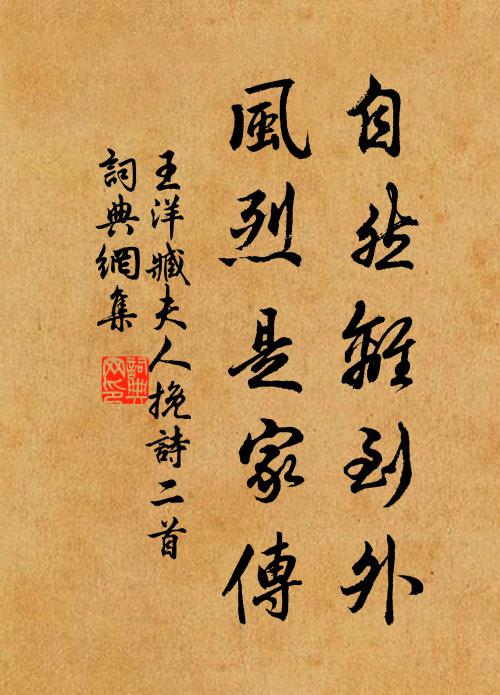 自然離到外
風烈是家傳
王洋臧夫人挽詩二首
詞典網集
詞典
网印